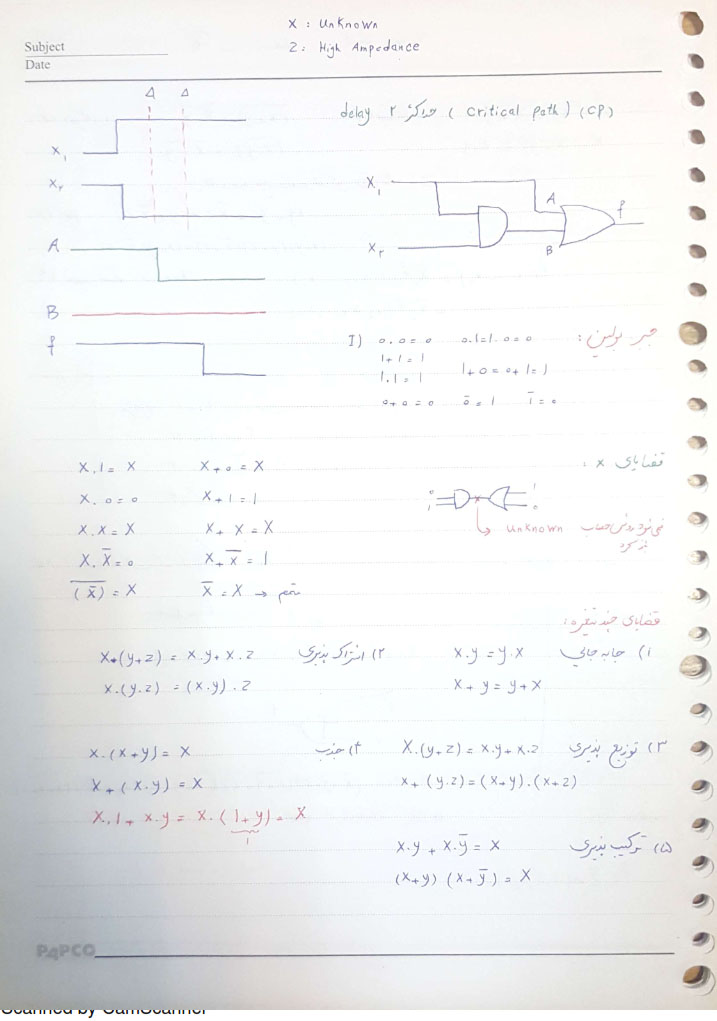 X : Unknown
Z : High Ampedance
Subject
Date
Δ Δ
حداکثر ۲ delay ( Critical path ) (CP)
X₁
X₂
A
B
f
X₁
X₂
A
B
f
جبر بولین :
I) 0.0=0 0.1=1.0=0
1+1=1
1.1=1 1+0=0+1=1
0+0=0 0̅=1 1̅=0
قضایای X :
X.1=X X+0=X
X.0=0 X+1=1
X.X=X X+X=X
X.X̅=0 X+X̅=1
(X̅)̅=X X̅=X → متمم
0 1
1 0
Unknown
نمی‌شود روش حساب
باز کرد
قضایای چند متغیره :
۱) جابه جایی X.y=y.X
X+y=y+X
۲) اشتراک پذیری X+(y+z)=X.y+X.z
X.(y.z)=(X.y).z
۳) توزیع پذیری X.(y+z)=X.y+X.z
X+(y.z)=(X+y).(X+z)
۴) جذب X.(X+y)=X
X+(X.y)=X
X.1+X.y=X.(1+y)=X
1
۵) ترکیب پذیری X.y+X.y̅=X
(X+y)(X+y̅)=X
PAPCO
Scanned by CamScanner